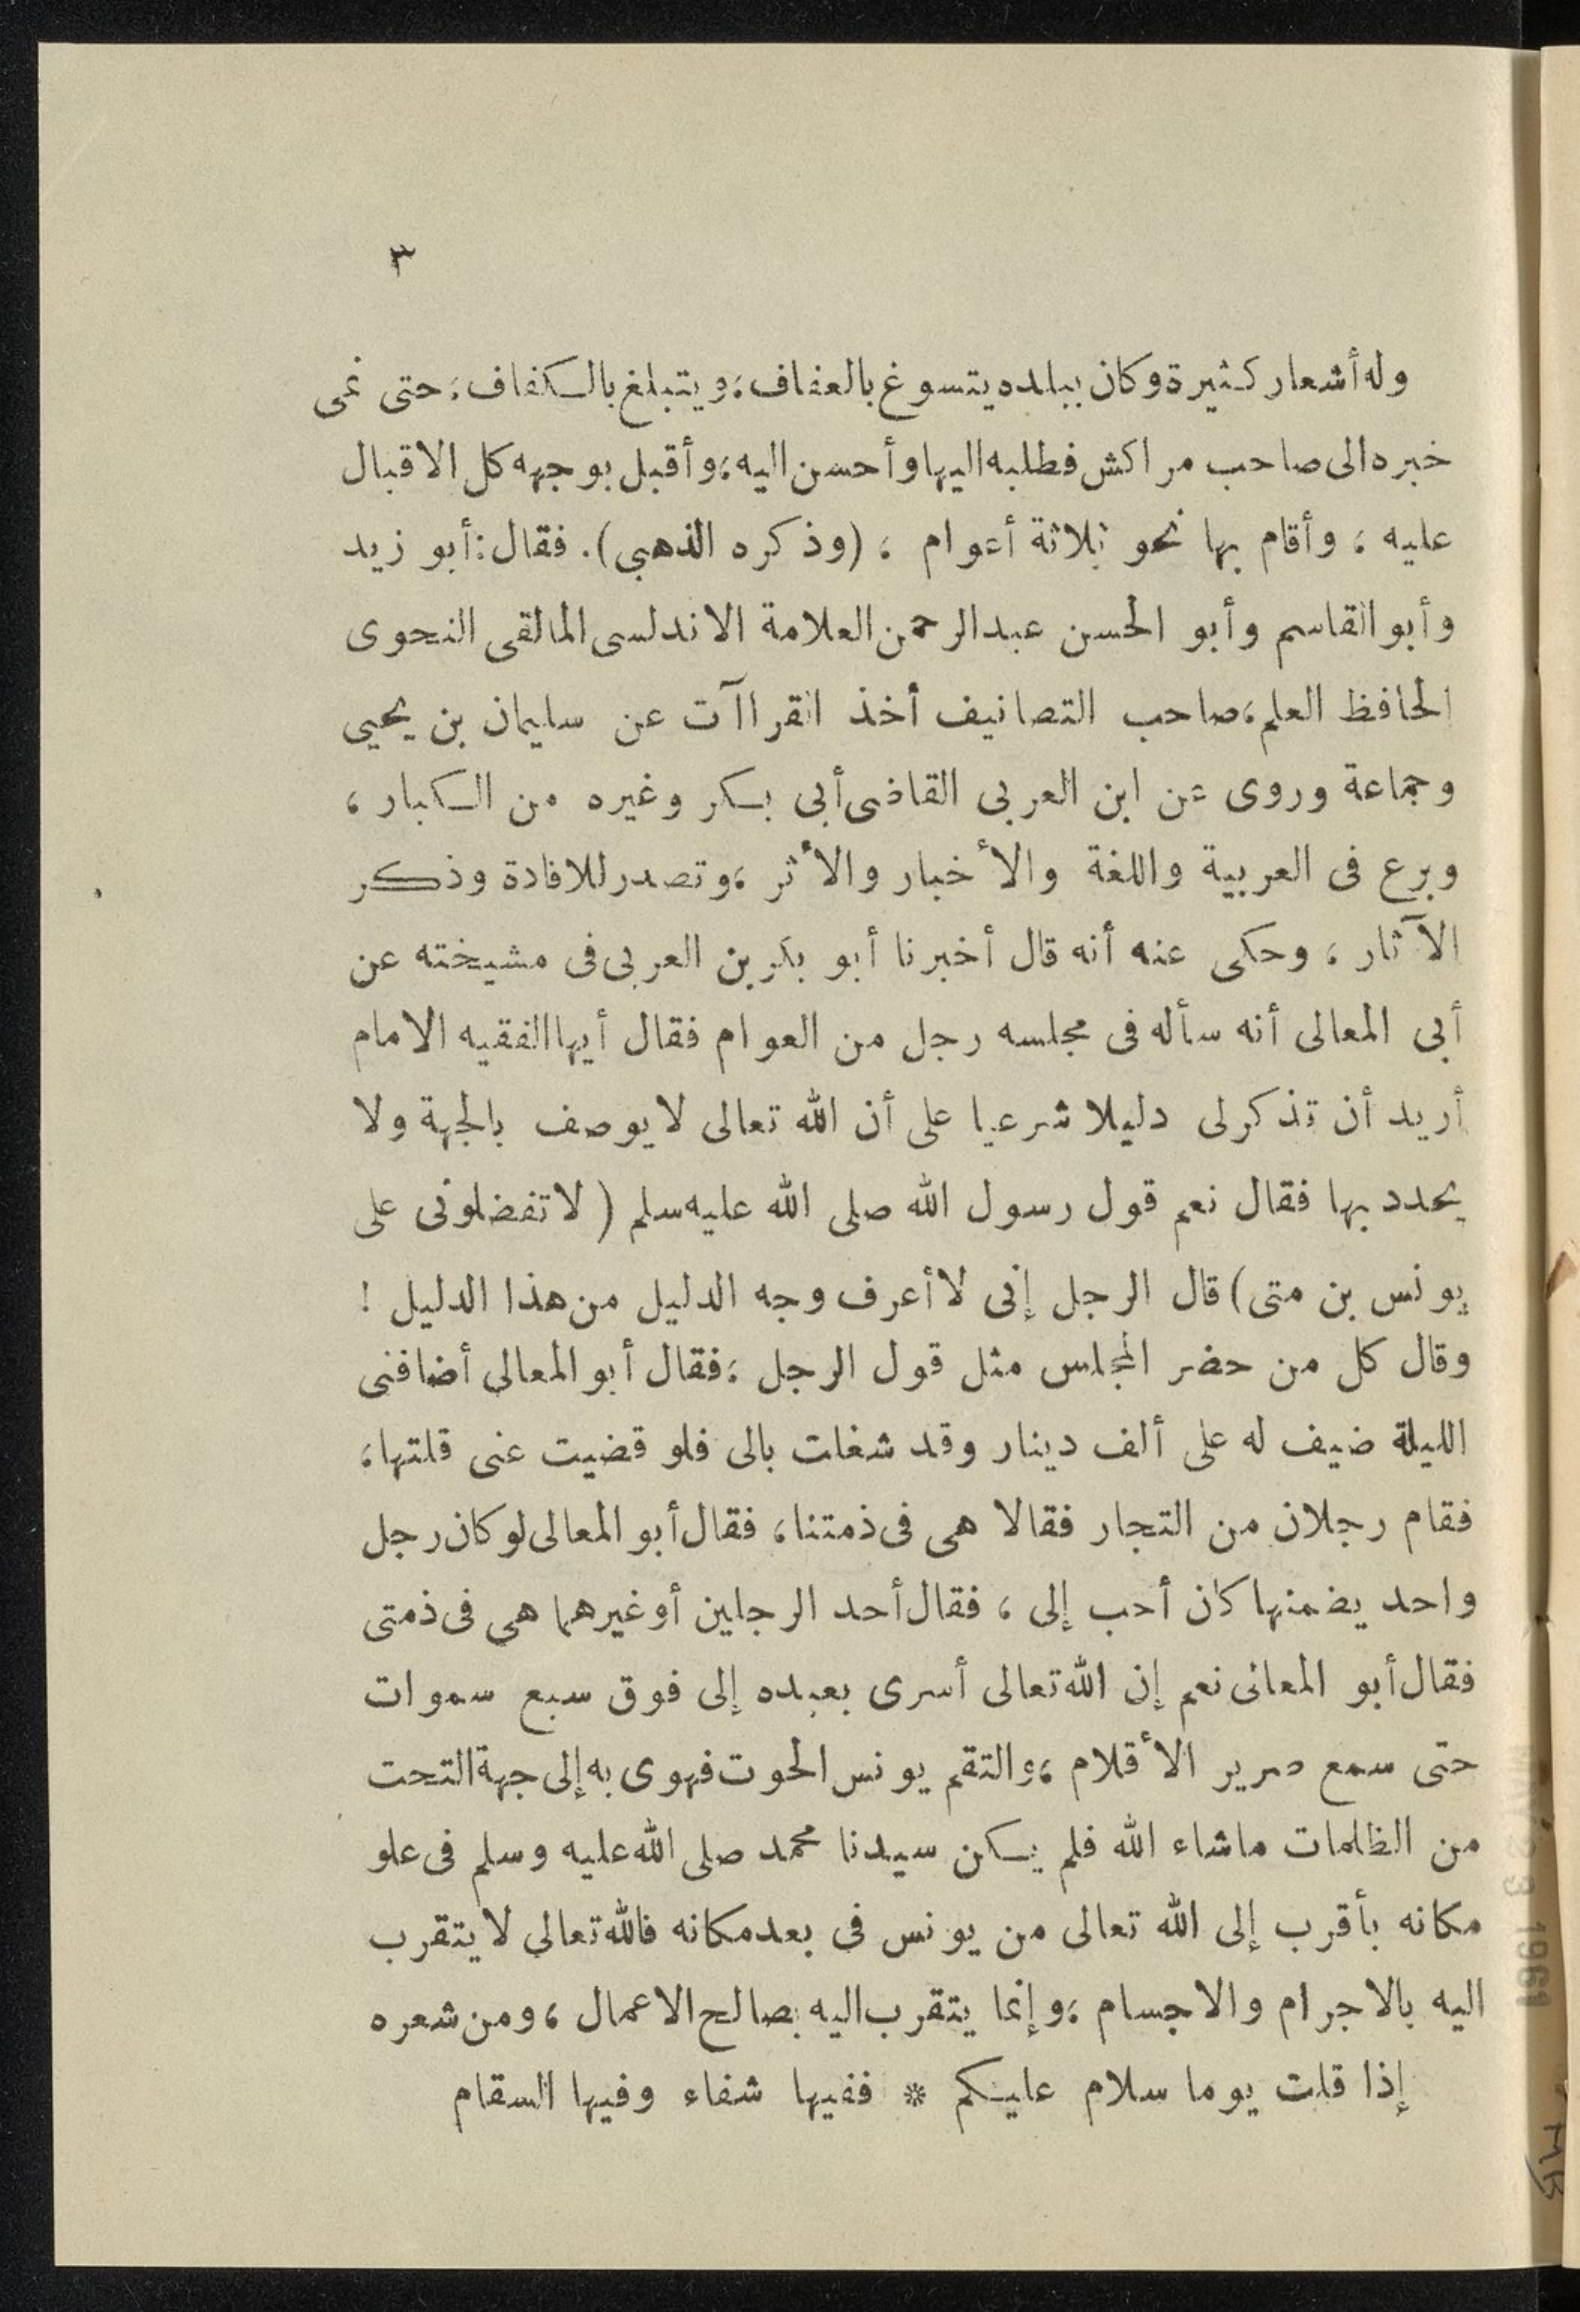 ٣
وله أشعار كثيرة وكان ببلده يتسوغ بالعفاف، ويتبلغ بالكفاف، حتى نمى
خبره الى صاحب مراكش فطلبه اليها وأحسن اليه، وأقبل بوجهه كل الاقبال
عليه ، وأقام بها نحو ثلاثة أعوام ، (وذكره الذهبي). فقال: أبو زيد
وأبو القاسم وأبو الحسن عبد الرحمن العلامة الاندلسى المالقى النحوى
الحافظ العلم، صاحب التصانيف أخذ القراآت عن سليمان بن يحيى
وجماعة وروى عن ابن العربى القاضى أبى بكر وغيره من الكبار ،
وبرع فى العربية واللغة والأخبار والأثر ، وتصدر للافادة وذكر
الآثار ، وحكى عنه أنه قال أخبرنا أبو بكر بن العربى فى مشيخته عن
أبى المعالى أنه سأله فى مجلسه رجل من العوام فقال أيها الفقيه الامام
أريد أن تذكر لى دليلا شرعيا على أن الله تعالى لا يوصف بالجهة ولا
يحدد بها فقال نعم قول رسول الله صلى الله عليه سلم ( لا تفضلونى على
يونس بن متى) قال الرجل إنى لا أعرف وجه الدليل من هذا الدليل !
وقال كل من حضر المجلس مثل قول الرجل ، فقال أبو المعالى أضافنى
الليلة ضيف له على ألف دينار وقد شغلت بالى فلو قضيت عنى قلتها،
فقام رجلان من التجار فقالا هى فى ذمتنا، فقال أبو المعالى لو كان رجل
واحد يضمنها كان أحب إلى ، فقال أحد الرجلين أو غيرهما هى فى ذمتى
فقال أبو المعالى نعم إن الله تعالى أسرى بعبده إلى فوق سبع سموات
حتى سمع صرير الأقلام ، والتقم يونس الحوت فهوى به إلى جهة التحت
من الظلمات ماشاء الله فلم يكن سيدنا محمد صلى الله عليه وسلم فى علو
مكانه بأقرب إلى الله تعالى من يونس فى بعد مكانه فالله تعالى لا يتقرب
اليه بالاجرام والاجسام ، وإنما يتقرب اليه بصالح الاعمال ، ومن شعره
إذا قلت يوما سلام عليكم * ففيها شفاء وفيها السقام